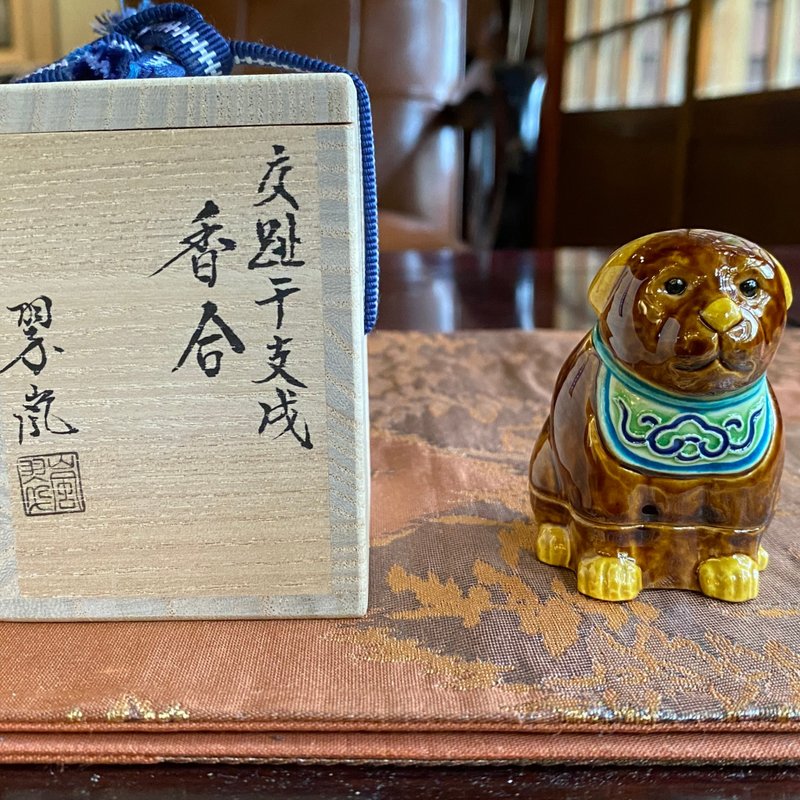 交趾干支戌
香合
翠嵐